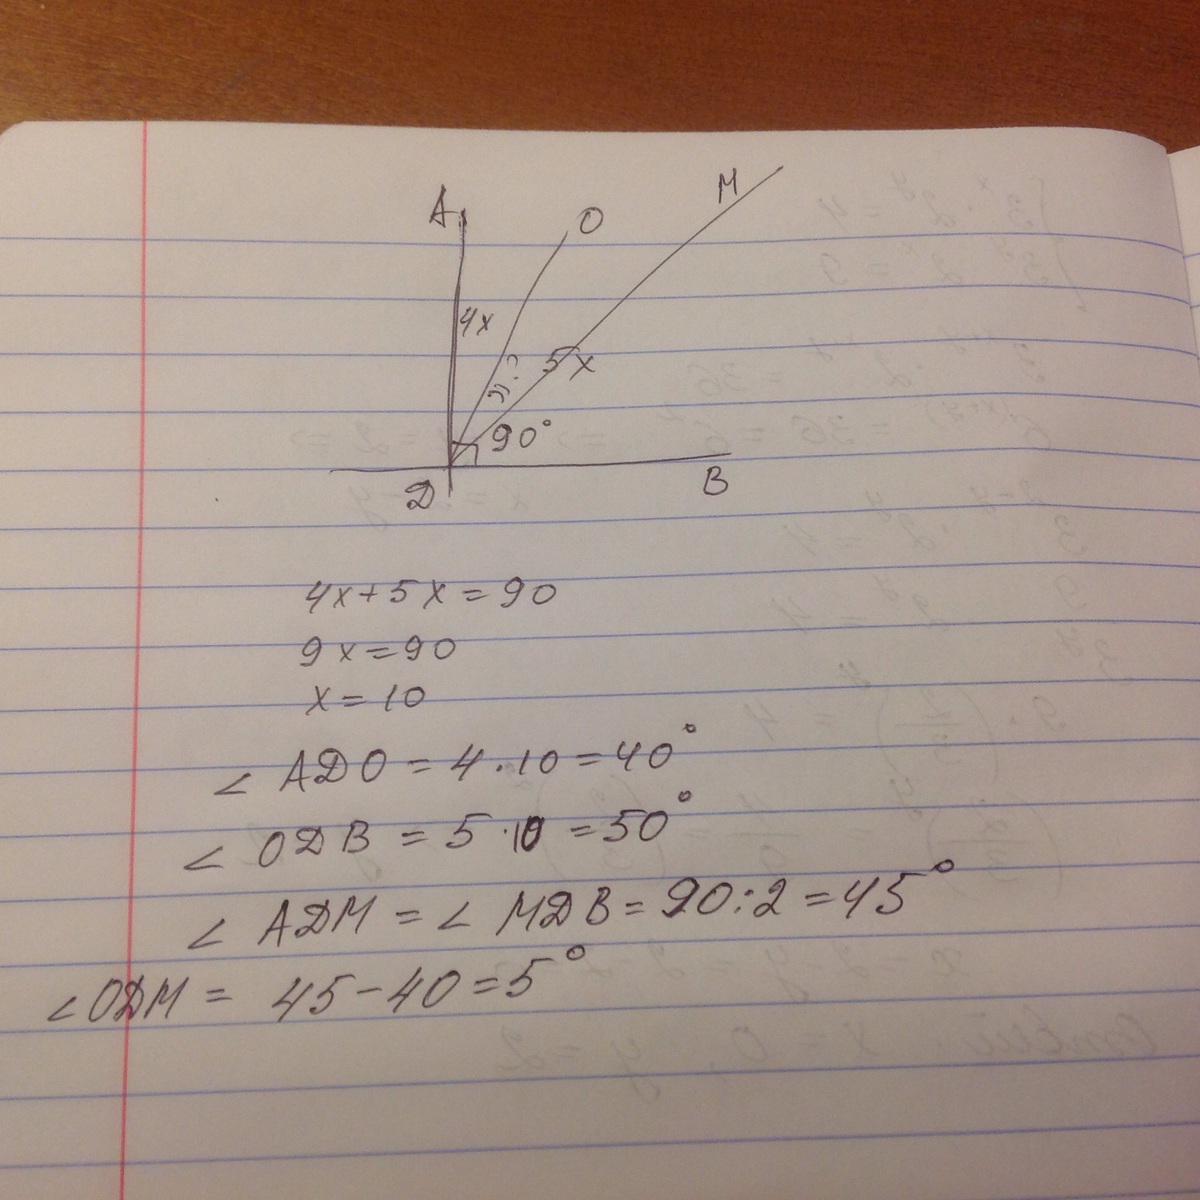 A
O
M
4x
?
5x
90°
D
B
4x+5x=90
9x=90
x=10
∠ ADO = 4·10=40°
∠ ODB = 5·10=50°
∠ ADM = ∠ MDB = 90:2=45°
∠ODM = 45-40=5°